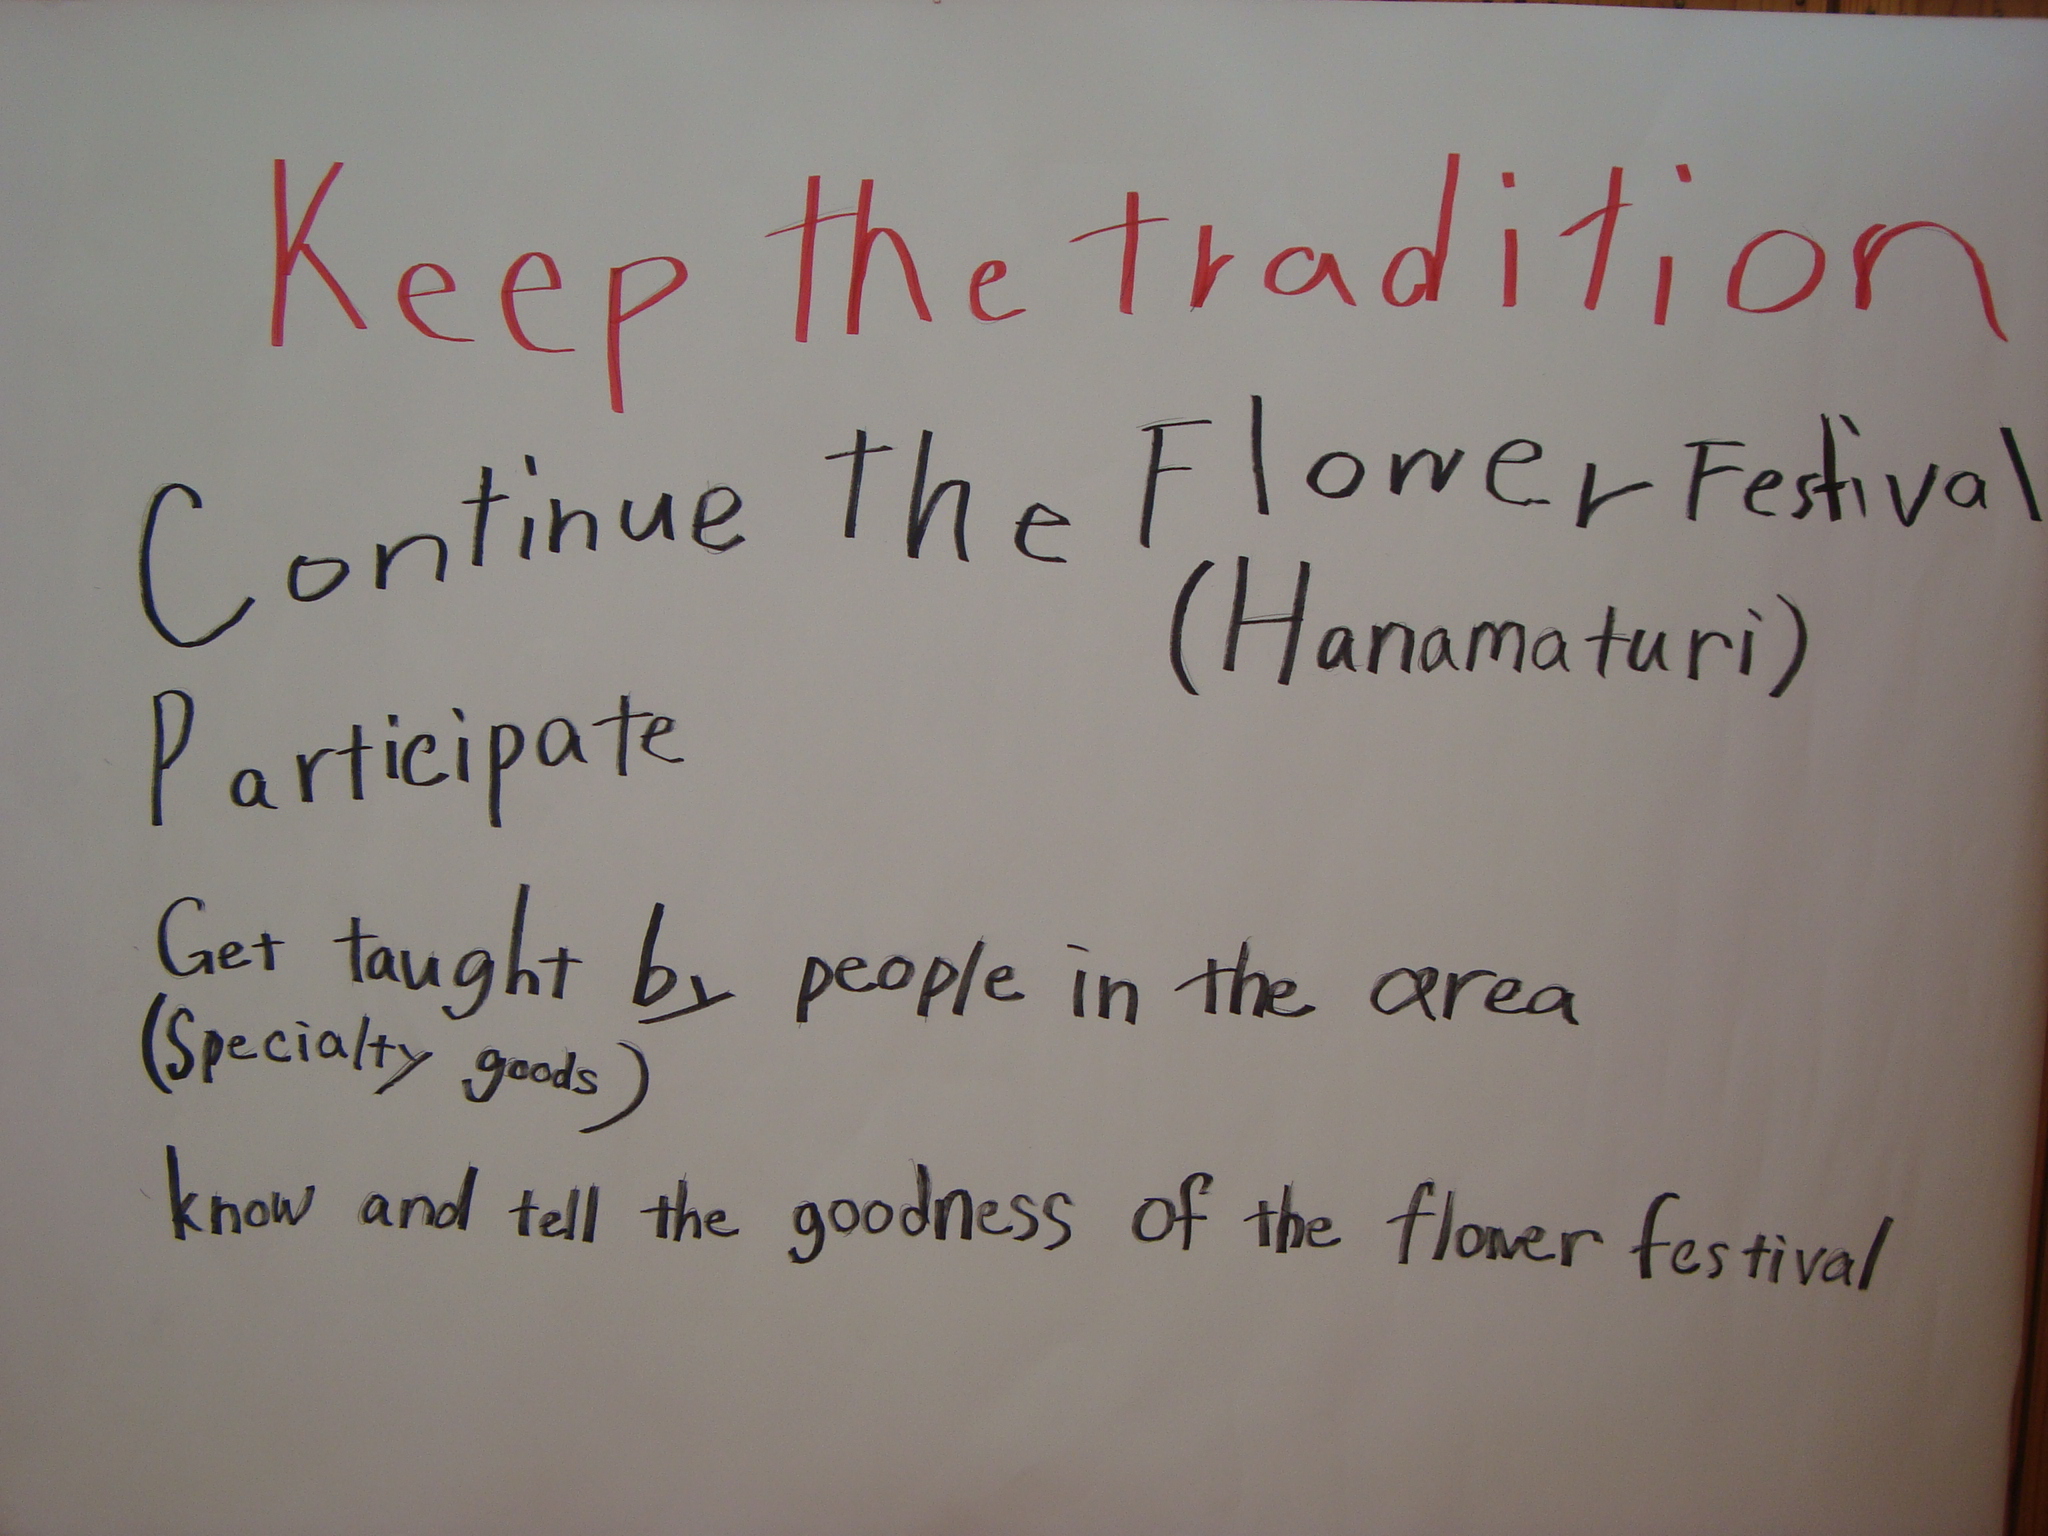 Keep the tradition
Continue the Flower Festival
(Hanamaturi)
Participate
Get taught by people in the area
(Specialty goods)
know and tell the goodness of the flower festival